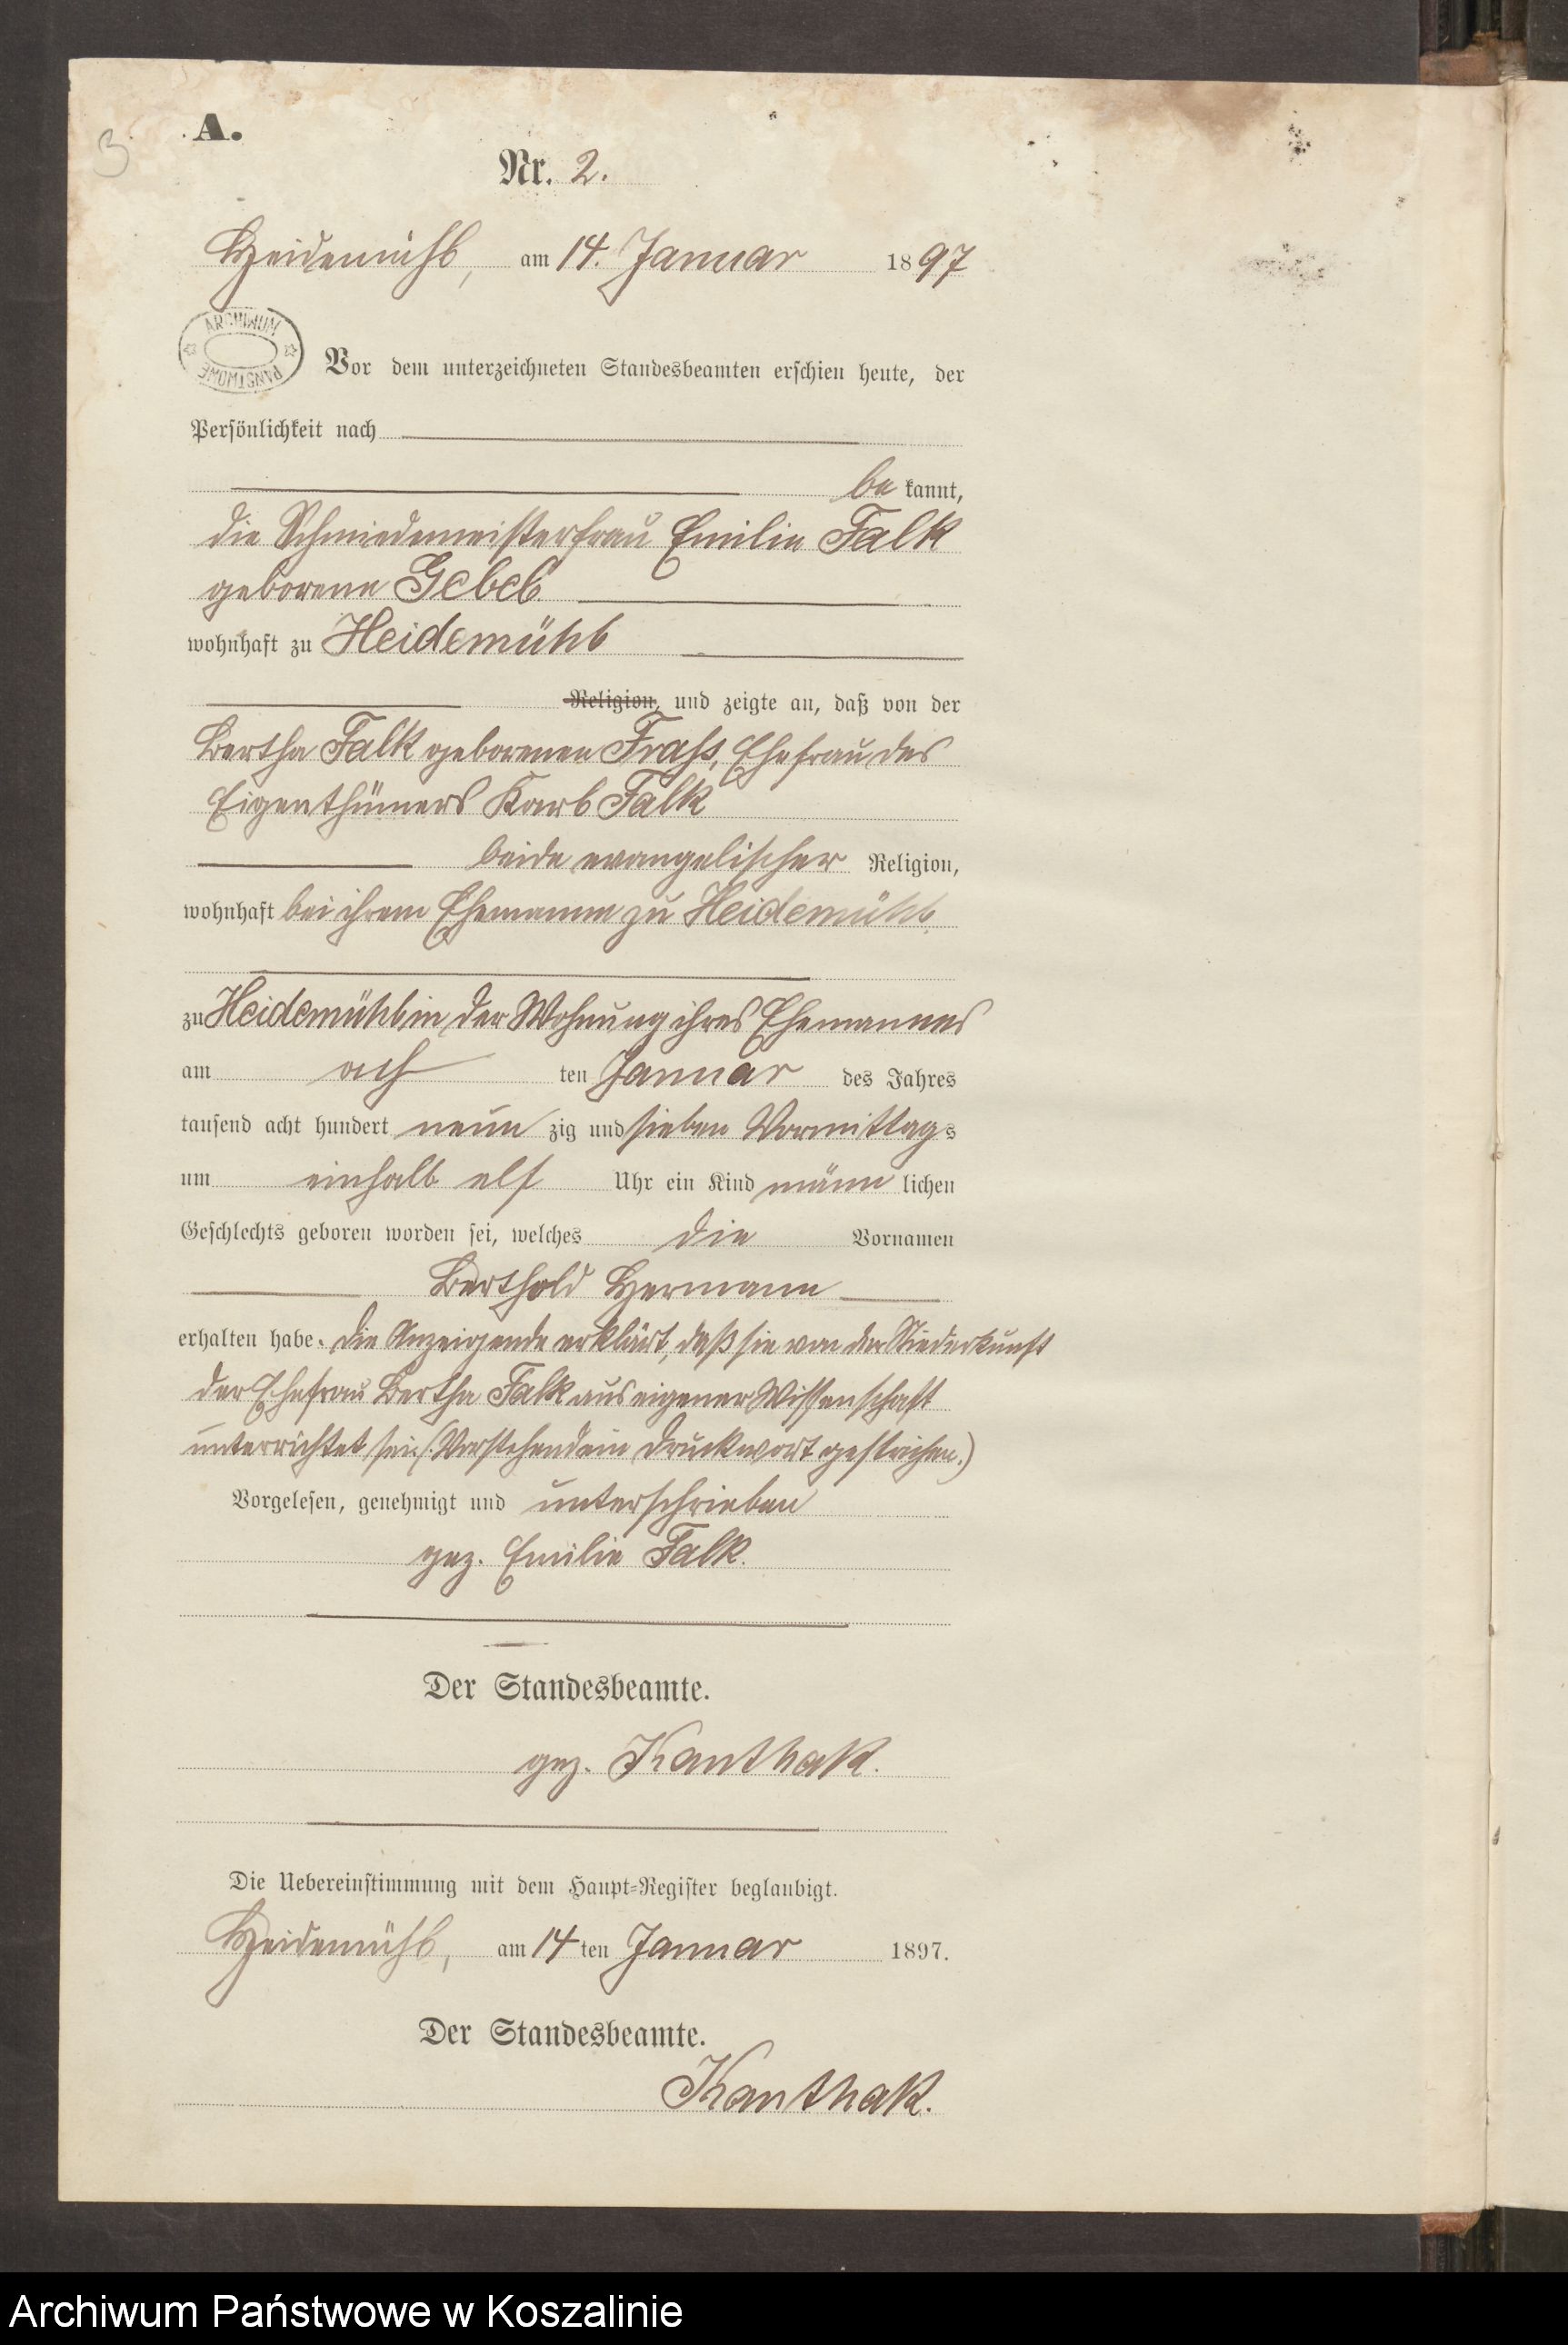 3
A.
Nr. 2.
Heidemühl, am 14. Januar 1897
ARCHIWUM PAŃSTWOWE
Vor dem unterzeichneten Standesbeamten erschien heute, der
Persönlichkeit nach
be kannt,
die Schmiedemeisterfrau Emilie Falk
geborene Gebel
wohnhaft zu Heidemühl
Religion, und zeigte an, daß von der
Bertha Falk geborenen Frass, Ehefrau des
Eigenthümers Karl Falk
beide evangelischer Religion,
wohnhaft bei ihrem Ehemanne zu Heidemühl,
zu Heidemühl in der Wohnung ihres Ehemannes
am ach ten Januar des Jahres
tausend acht hundert neun zig und sieben Vormittags
um einhalb elf Uhr ein Kind männ lichen
Geschlechts geboren worden sei, welches die Vornamen
Berthold Hermann
erhalten habe. Die Anzeigende erklärt, daß sie von der Niederkunft
der Ehefrau Bertha Falk aus eigener Wissenschaft
unterrichtet sei. (Vorstehend ein Druckwort gestrichen.)
Vorgelesen, genehmigt und unterschrieben
gez. Emilie Falk.
Der Standesbeamte.
gez. Kanthak.
Die Uebereinstimmung mit dem Haupt-Register beglaubigt.
Heidemühl, am 14 ten Januar 1897.
Der Standesbeamte.
Kanthak.
Archiwum Państwowe w Koszalinie